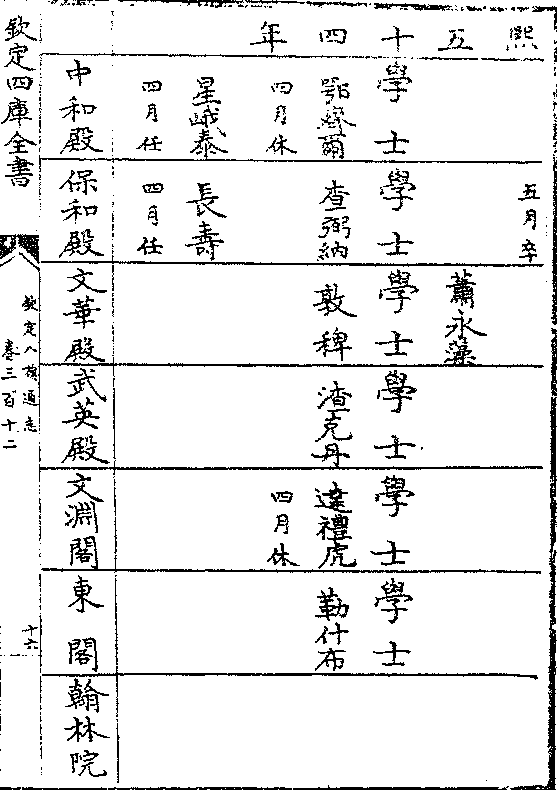 熙五十四年
五月卒
蕭永藻
學士
學士
學士
學士
學士
學士
鄂繹爾
四月休
查弼納
敦稗
渣克丹
達禮虎
四月休
勒什布
星峨泰
四月任
長壽
四月任
中和殿
保和殿
文華殿
武英殿
文淵閣
東閣
翰林院
欽定四庫全書
欽定八旗通志
卷三百十二
十六